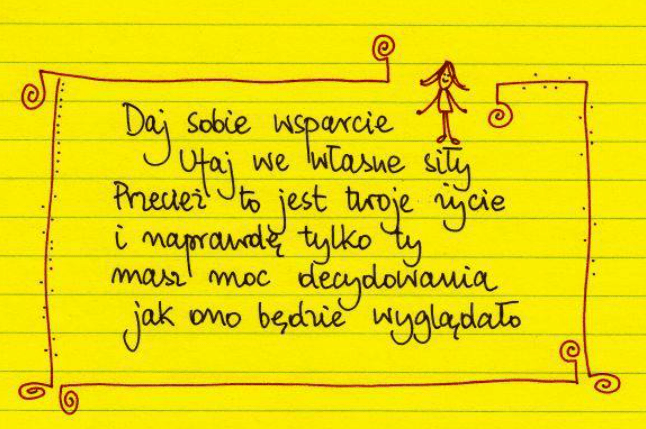 Daj sobie wsparcie
Ufaj we własne siły
Przecież to jest twoje życie
i naprawdę tylko ty
masz moc decydowania
jak ono będzie wyglądało